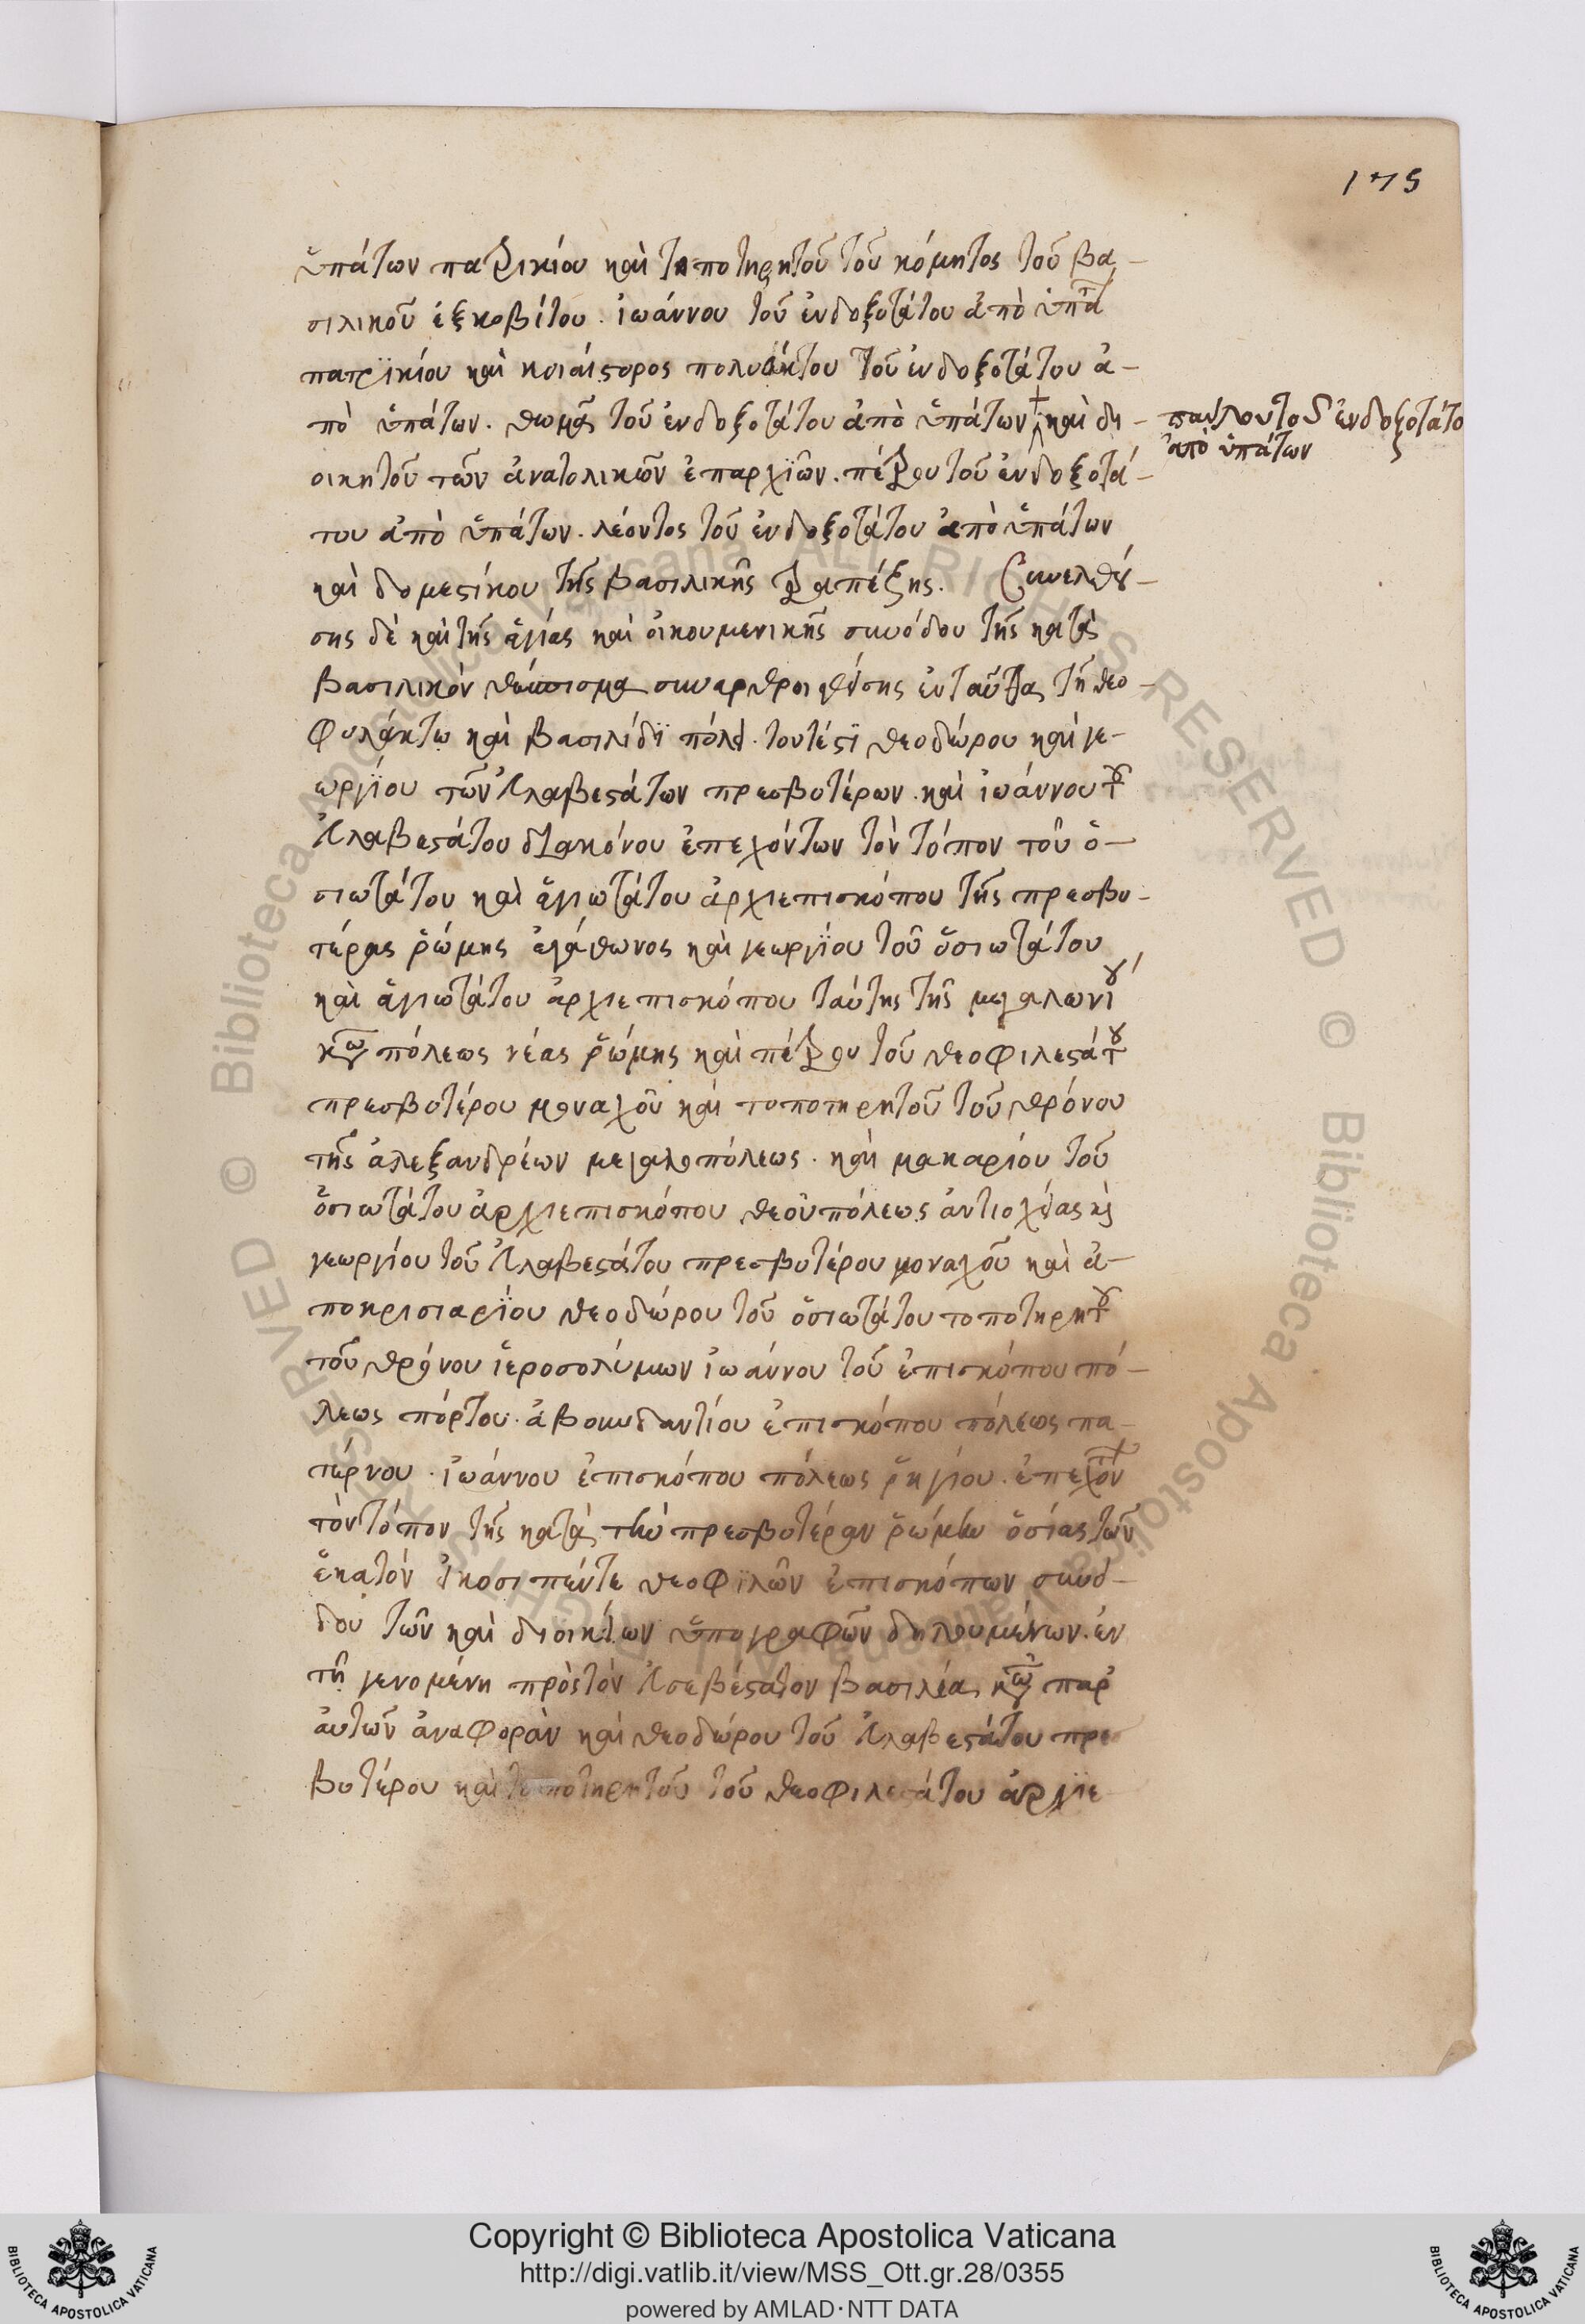 175
ὑπάτων πατρικίου καὶ τοποτηρητοῦ τοῦ κόμητος τοῦ βα-
σιλικοῦ ἐξκοβίτου. ἰωάννου τοῦ ἐνδοξοτάτου ἀπὸ ὑπάτ
πατρϊκίου καὶ κοιαίστορος πολυεύκτου τοῦ ἐνδοξοτάτου ἀ-
πὸ ὑπάτων. θωμᾶ τοῦ ἐνδοξοτάτου ἀπὸ ὑπάτων καὶ δι-
παύλου τοῦ ἐνδοξοτάτο
ἀπὸ ὑπάτων
οικητοῦ τῶν ἀνατολικῶν ἐπαρχϊῶν. πέτρου τοῦ ἐνδοξοτά-
του ἀπὸ ὑπάτων. λέοντος τοῦ ἐνδοξοτάτου ἀπὸ ὑπάτων
καὶ δομεστίκου τῆς βασιλικῆς τραπέζης. Συνελθού-
σης δὲ καὶ τῆς ἁγίας καὶ οἰκουμενικῆς συνόδου τῆς κατὰ
βασιλικὸν θέσπισμα συναρθροισθείσης ἐνταῦθα τῇ θεο-
φυλάκτω καὶ βασιλίδϊ πόλει. τουτέστϊ θεοδώρου καὶ γε-
ωργϊου τῶν εὐλαβεστάτων πρεσβυτέρων. καὶ ἰωάννου τοῦ
εὐλαβεστάτου διακόνου ἐπεχόντων τὸν τόπον τοῦ ὁ-
σιωτάτου καὶ ἁγιωτάτου ἀρχιεπισκόπου τῆς πρεσβυ-
τέρας ῥώμης ἀγάθωνος καὶ γεωργϊου τοῦ ὁσιωτάτου
καὶ ἁγιωτάτου ἀρχιεπισκόπου ταύτης τῆς μεγαλωνύ
κωνπόλεως νέας ῥώμης καὶ πέτρου τοῦ θεοφιλεστάτου
πρεσβυτέρου μοναχοῦ καὶ τοποτηρητοῦ τοῦ θρόνου
τῆς ἀλεξανδρέων μεγαλοπόλεως. καὶ μακαρίου τοῦ
ὁσιωτάτου ἀρχιεπισκόπου θεοῦπόλεως ἀντιοχείας κὶ
γεωργίου τοῦ εὐλαβεστάτου πρεσβυτέρου μοναχοῦ καὶ ἀ-
ποκρισιαρϊου θεοδώρου τοῦ ὁσιωτάτου τοποτηρητοῦ
τοῦ θρόνου ἱεροσολύμων ἰωάννου τοῦ ἐπισκόπου πό-
λεως πόρτου. ἀβουνδαντίου ἐπισκόπου πόλεως πα-
τέρνου. ἰωάννου ἐπισκόπου πόλεως ῥηγίου. ἐπεχόντ
τὸν τόπον τῆς κατὰ τὴν πρεσβυτέραν ῥώμην ὁσίας τῶν
ἑκατὸν εἰκοσιπέντε θεοφϊλῶν ἐπισκόπων συνό-
δου τῶν καὶ διοικείων ὑπογραφῶν δηλουμένων. ἐν
τῇ γενομένη πρὸς τὸν εὐσεβέστατον βασιλέα κων παρ
ἀυτῶν ἀναφορὰν καὶ θεοδώρου τοῦ εὐλαβεστάτου πρεσ
βυτέρου καὶ τοποτηρητοῦ τοῦ θεοφιλεστάτου ἀρχιε-
Copyright © Biblioteca Apostolica Vaticana
http://digi.vatlib.it/view/MSS_Ott.gr.28/0355
powered by AMLAD·NTT DATA